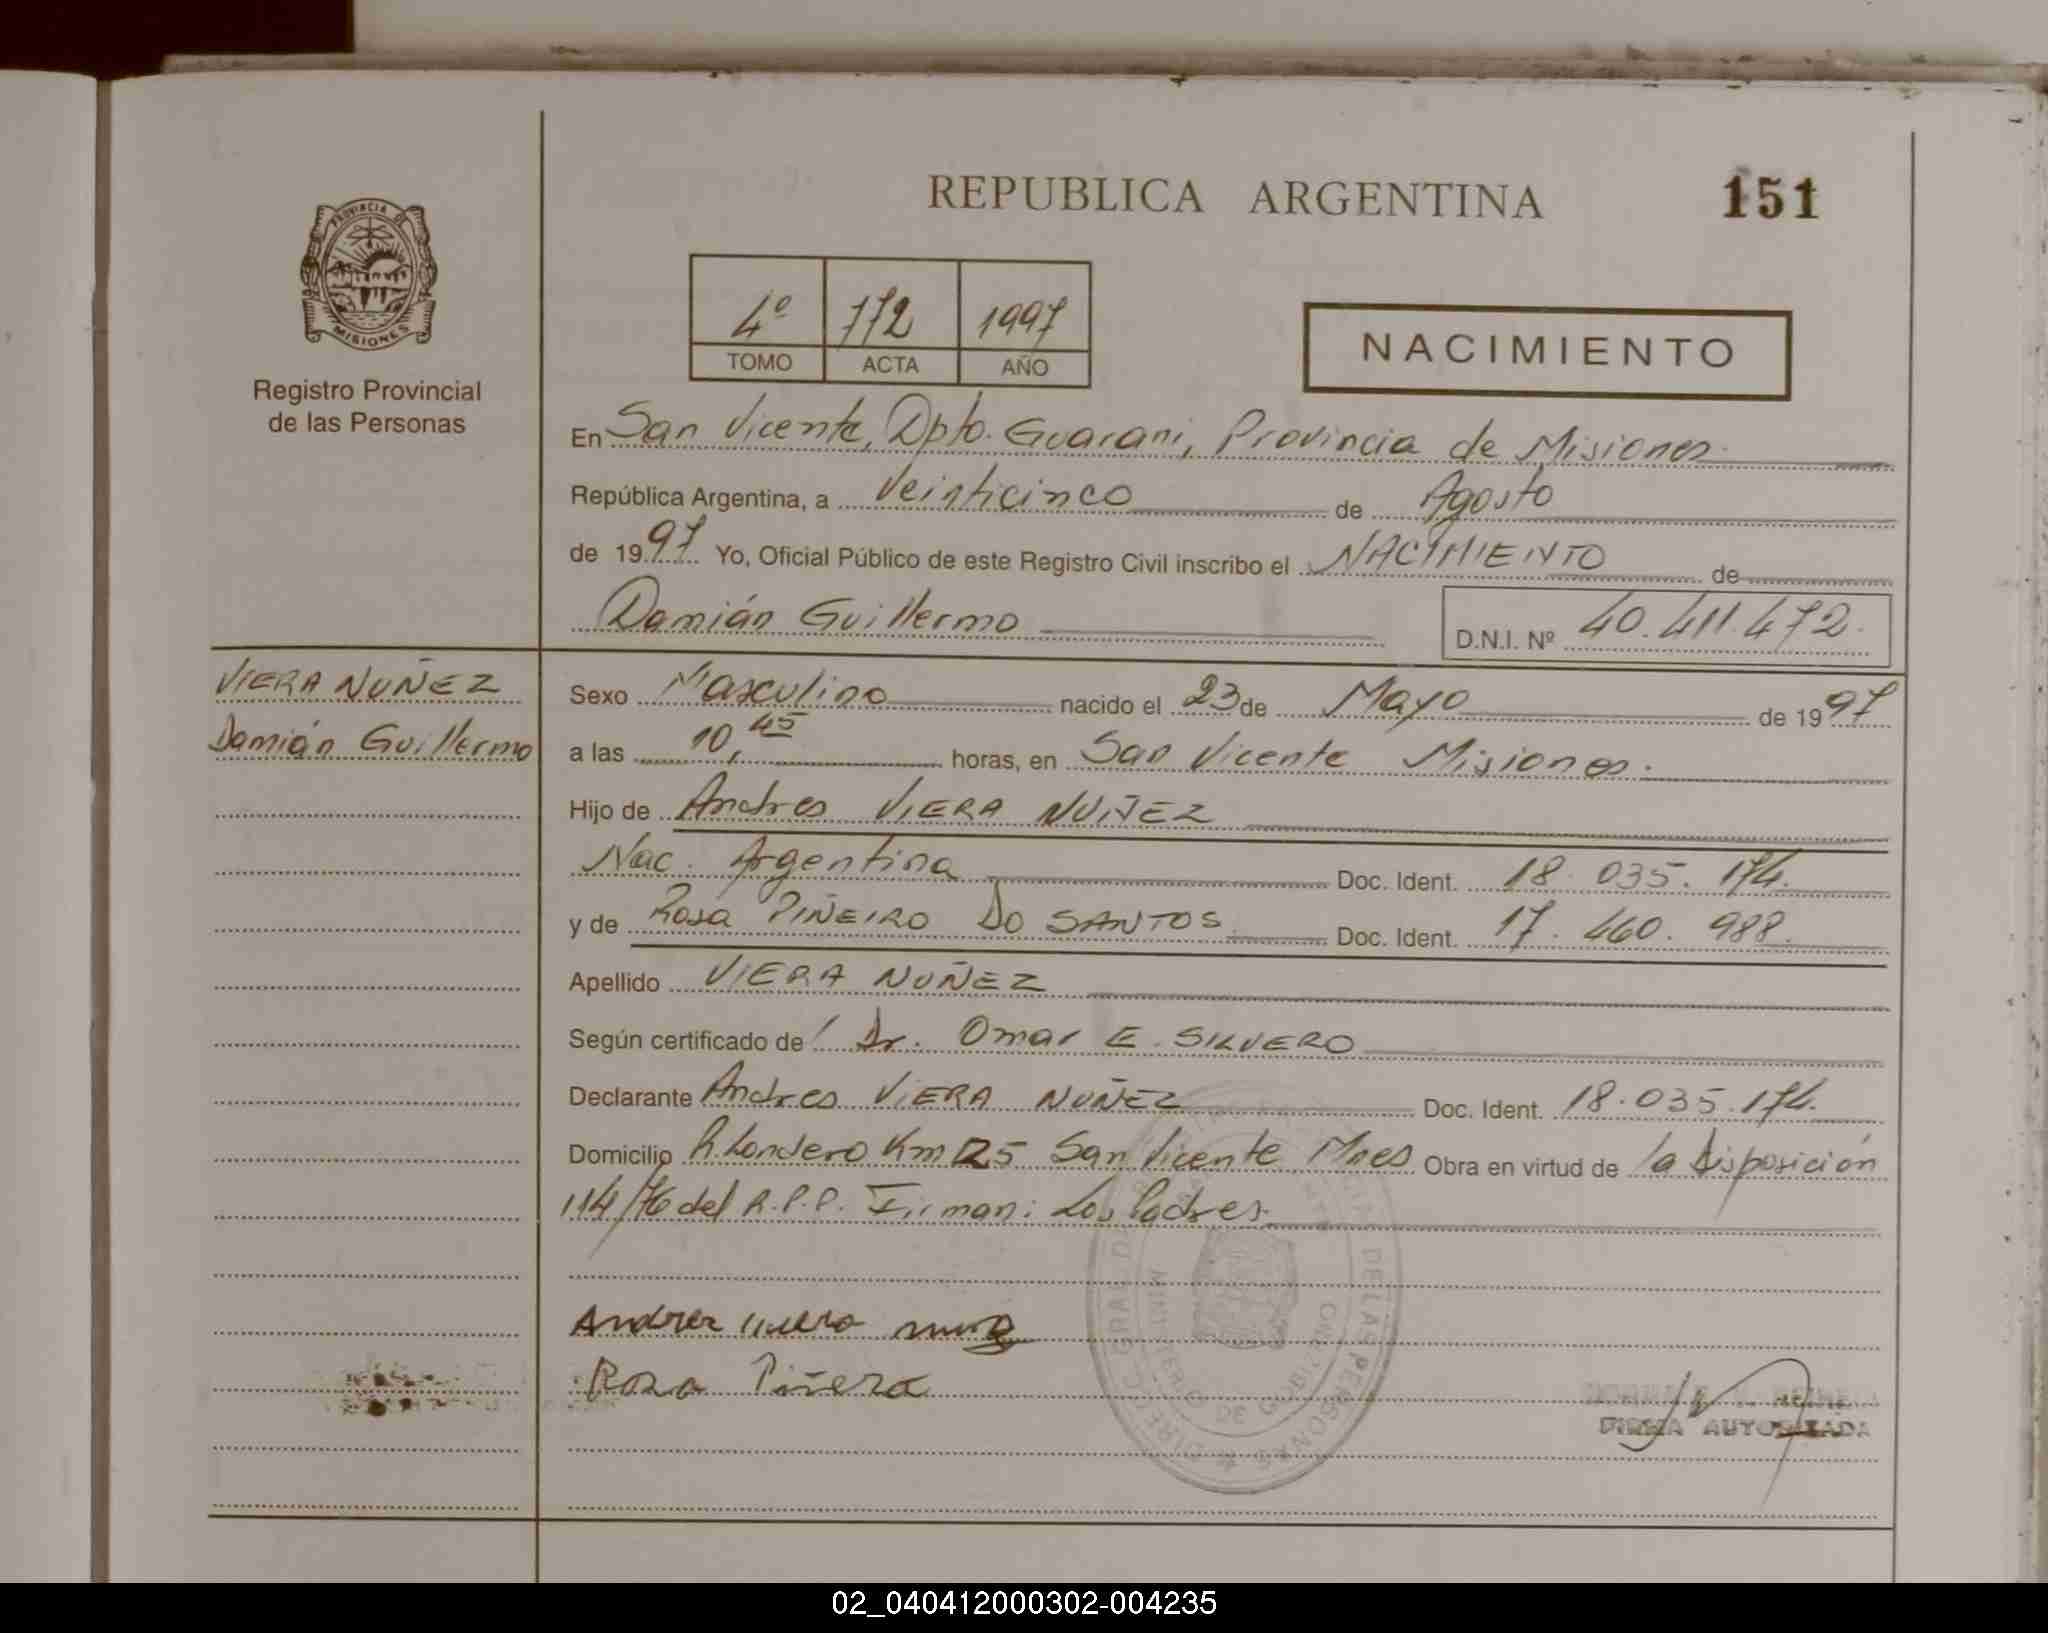 PROVINCIA DE
MISIONES
Registro Provincial
de las Personas
REPUBLICA ARGENTINA
151
4º 772 1997
TOMO ACTA AÑO
NACIMIENTO
En San Vicente, Dpto. Guarani, Provincia de Misiones.
República Argentina, a Veinticinco de Agosto
de 1997 Yo, Oficial Público de este Registro Civil inscribo el NACIMIENTO de
Damián Guillermo
D.N.I. Nº 40.411.472.
VIERA NUÑEZ
Damián Guillermo
Sexo Masculino nacido el 23 de Mayo de 1997
a las 10,45 horas, en San Vicente Misiones.
Hijo de Andres VIERA NUÑEZ
Nac. Argentina Doc. Ident. 18.035.174.
y de Rosa PIÑEIRO DO SANTOS Doc. Ident. 17.460.988.
Apellido VIERA NUÑEZ
Según certificado de Dr. Omar E. SILVERO
Declarante Andres VIERA NUÑEZ Doc. Ident. 18.035.174.
Domicilio Km 25 San Vicente Mnes Obra en virtud de la Disposición
114/76 del R.P.P. Firman: Los Padres.
Rosa Piñera
DIREC. GRAL. DE LAS PERSONAS
MINISTERIO DE GOBIERNO
FIRMA AUTORIZADA
02_040412000302-004235